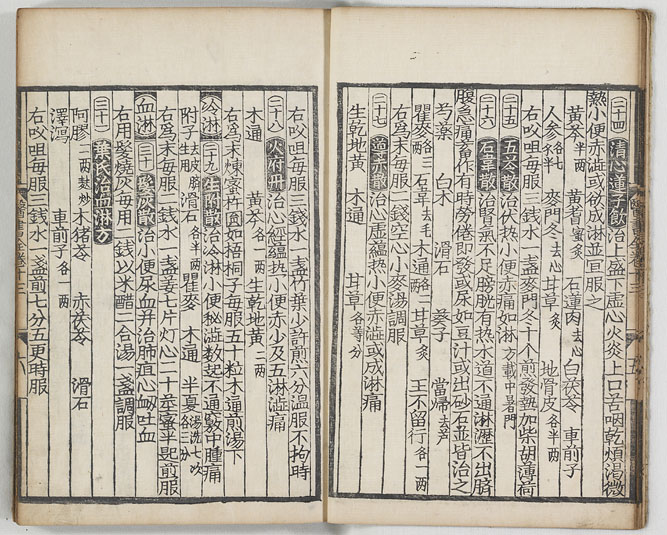 (二十四)清心蓮子飲治上盛下虛心火炎上口苦咽乾煩渴微
熱小便赤澁或欲成淋並宜服之
黃芩半兩 黃耆蜜炙 石蓮肉去心 白茯苓 車前子
人參各七錢半 麥門冬去心 甘草炙 地骨皮各半兩
右㕮咀每服三錢水一盞麥門冬十个煎發熱加柴胡薄荷
(二十五)五苓散治伏熱小便赤痛如淋方載中暑門
(二十六)石韋散治腎氣不足膀胱有熱水道不通淋瀝不出臍
腹急痛蓄作有時勞倦即發或尿如豆汁或出砂石並皆治之
芍藥 白朮 滑石 葵子 當歸去芦
瞿麥各三兩 石韋去毛 木通各二兩 甘草炙 王不留行各一兩
右爲末每服一錢空心小麥湯調服
(二十七)導赤散治心虛蘊熱小便赤澁或成淋痛
生乾地黃 木通 甘草各等分
右㕮咀每服三錢水一盞竹葉少許煎六分溫服不拘時
(二十八)火府丹治心經蘊熱小便赤少及五淋澁痛
木通 黃芩各一兩 生乾地黃二兩
右爲末煉蜜杵圓如梧桐子每服五十粒木通煎湯下
冷淋(二十九)生附散治冷淋小便秘澁數起不通竅中腫痛
附子去皮臍生用 滑石各半兩 瞿麥 木通 半夏湯洗七次各三分
右爲末每服二錢水一盞姜七片灯心二十莖蜜半匙煎服
血淋(三十)髮灰散治小便尿血并治肺疽心衂吐血
右用髮燒灰每用二錢以米醋二合湯一盞調服
(三十一)葉氏治血淋方
阿膠二兩麩炒 木猪苓 赤茯苓 滑石
澤瀉 車前子各一兩
右㕮咀每服三錢水一盞煎七分五更時服